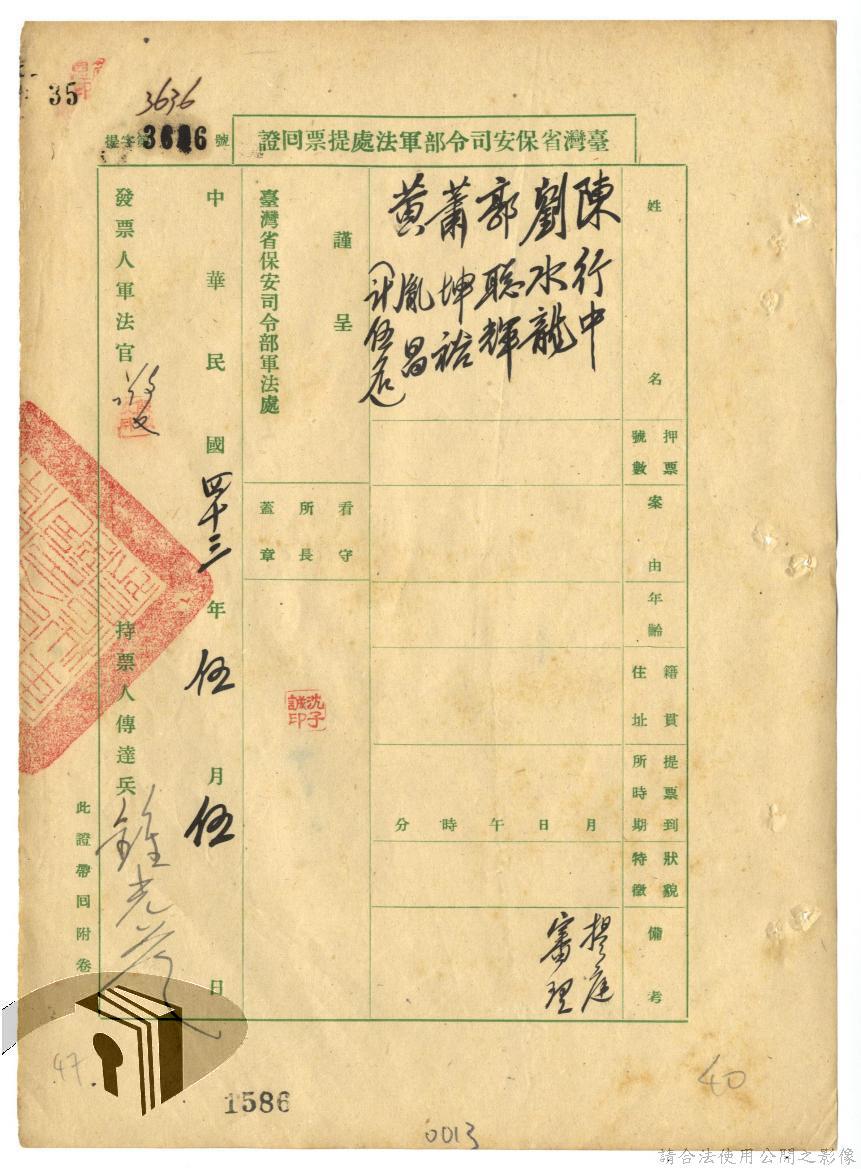 35
3636
提字第3646號
臺灣省保安司令部軍法處提票回證
姓名
陳行中
劉水龍
郭聰輝
蕭坤裕
黃胤昌
(計伍名)
押票號數
案由
年齡
籍貫住址
提票到所時期
月日午時分
狀貌特徵
備考
提庭審理
謹呈
臺灣省保安司令部軍法處
看守所長蓋章
沈子誠印
中華民國四十三年伍月伍日
發票人軍法官
持票人傳達兵
此證帶回附卷
47
1586
0013
40
請合法使用公開之影像